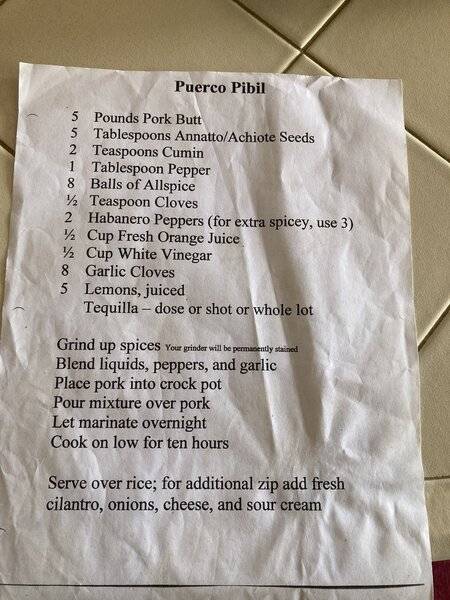 Puerco Pibil
5 Pounds Pork Butt
5 Tablespoons Annatto/Achiote Seeds
2 Teaspoons Cumin
1 Tablespoon Pepper
8 Balls of Allspice
½ Teaspoon Cloves
2 Habanero Peppers (for extra spicey, use 3)
½ Cup Fresh Orange Juice
½ Cup White Vinegar
8 Garlic Cloves
5 Lemons, juiced
Tequilla – dose or shot or whole lot
Grind up spices Your grinder will be permanently stained
Blend liquids, peppers, and garlic
Place pork into crock pot
Pour mixture over pork
Let marinate overnight
Cook on low for ten hours
Serve over rice; for additional zip add fresh
cilantro, onions, cheese, and sour cream